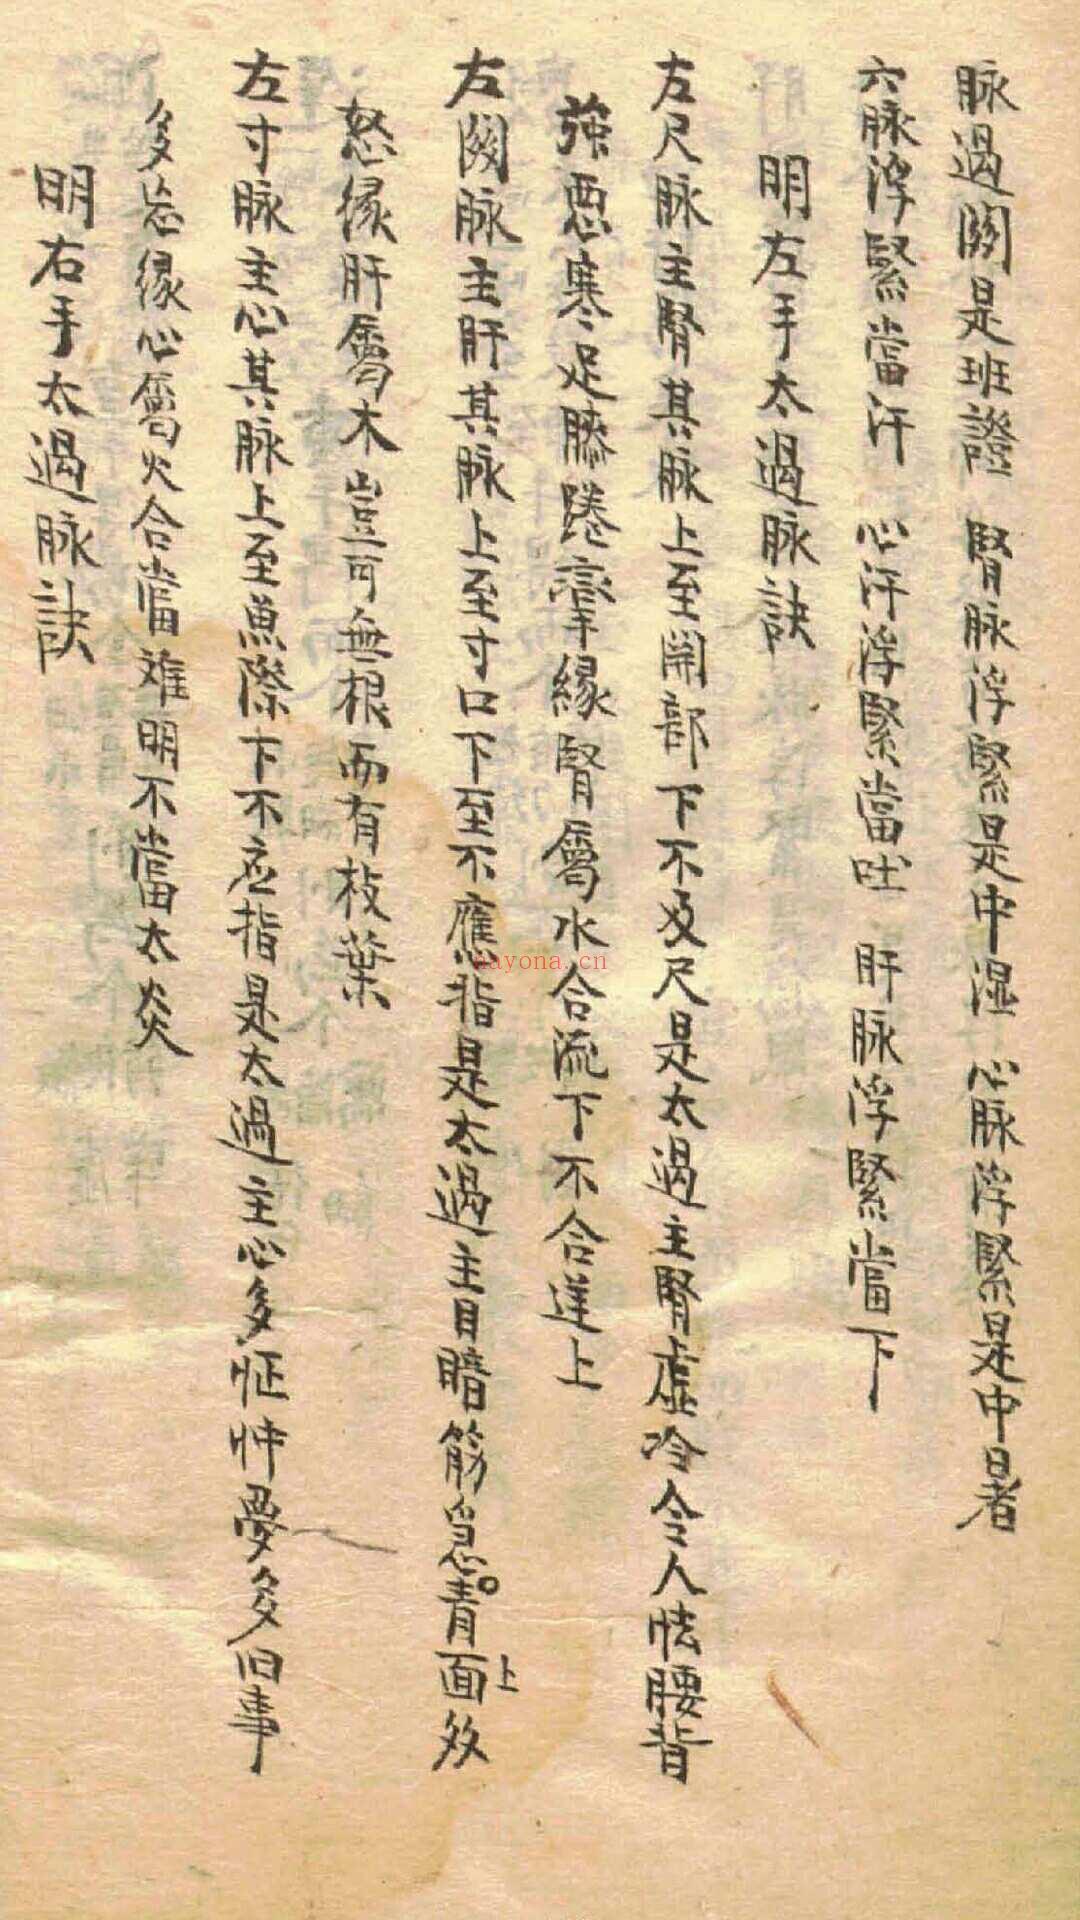 脉過関是班證　腎脉浮緊是中濕　心脉浮緊是中暑
六脉浮緊當汗　心汗浮緊當吐　肝脉浮緊當下
明左手太過脉訣
左尺脉主腎其脉上至関部下不及尺是太過主腎虛冷令人怯腰背
強惡寒足膝踡攣緣腎屬水合流下不合逆上
左関脉主肝其脉上至寸口下至不應指是太過主目暗筋急青面上多
怒緣肝屬木豈可無根而有枝葉
左寸脉主心其脉上至魚際下不应指是太過主心多怔忡夢多旧事
多忘緣心屬火合當难明不當太炎
明右手太過脉訣
nayona.cn